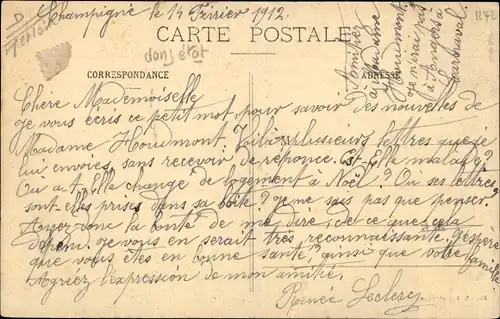 Champigné le 14 Février 1912.
CARTE POSTALE
dans état
CORRESPONDANCE
ADRESSE
Chère Mademoiselle
Je vous écris ce petit mot, pour savoir des nouvelles de
Madame Houdmont. Voilà plusieurs lettres que je
lui envoies, sans recevoir de réponce. Est-Elle malade?
Ou a-t-Elle changé de logement à Noël? Ou ses lettres
sont-elles prises dans sa boîte? Je ne sais pas que penser.
Ayez donc la bonté de me dire, de ce que cela
dépend. Je vous en serait très reconnaissante. J'espère
que vous êtes en bonne santé, ainsi que votre famille
Agréez l'expression de mon amitié.
Renée Leclercq
à Madame
Houdmont
je n'irai pas
à
Carnaval